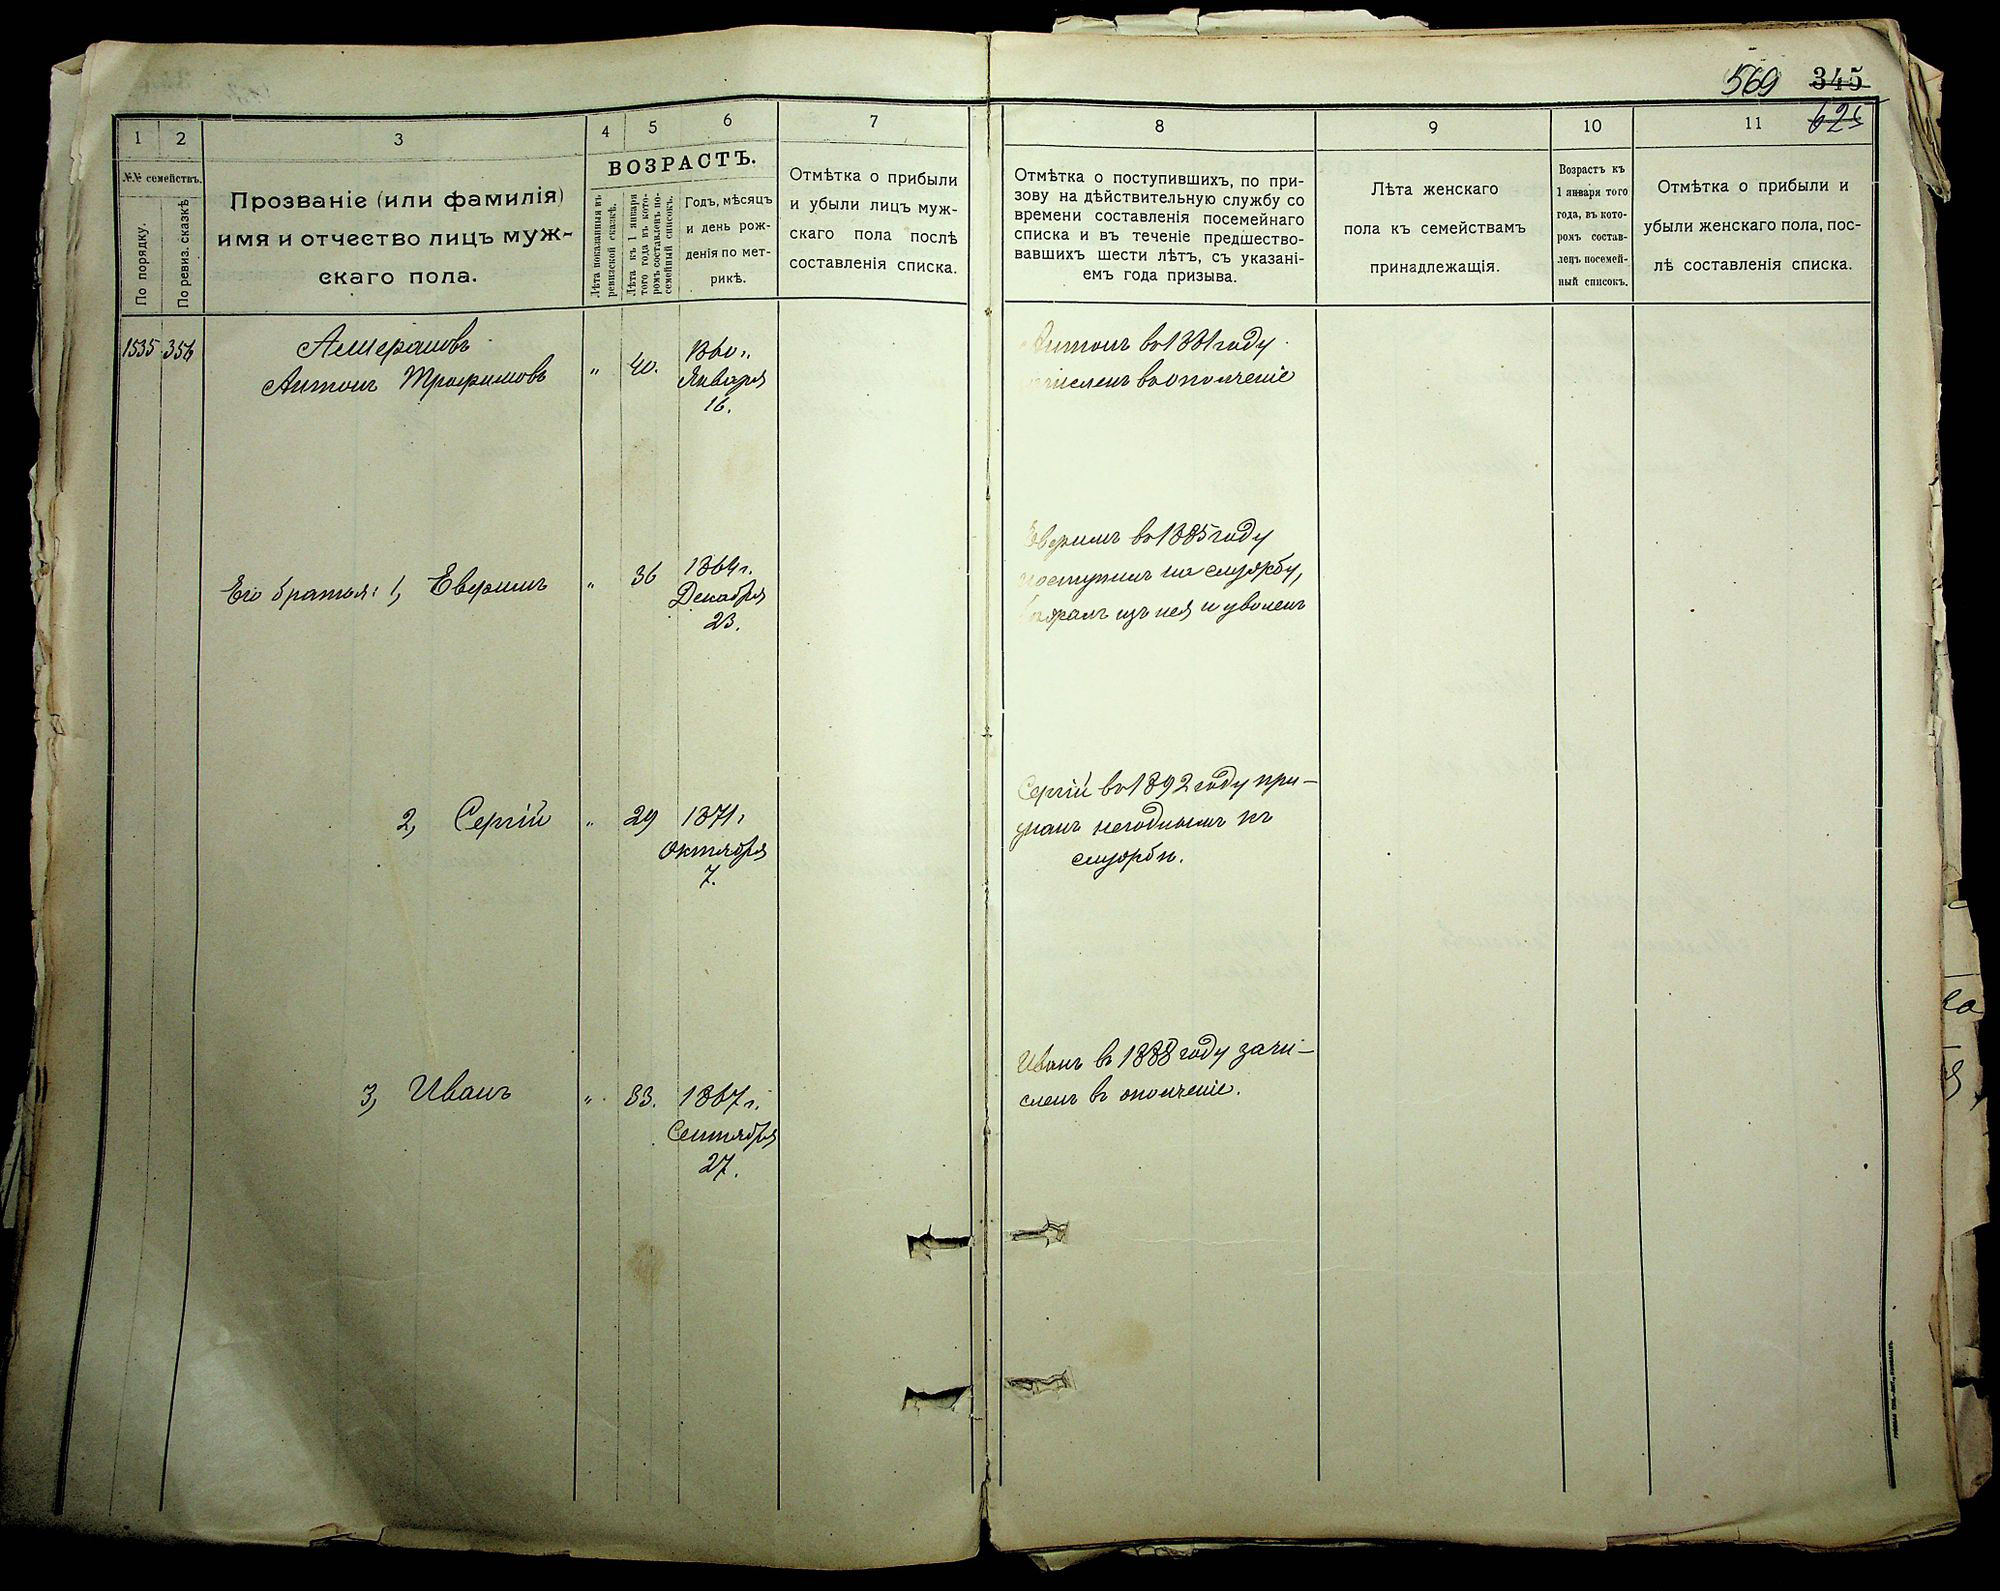 569 345
625
1
2
3
4
5
6
7
8
9
10
11
№№ семействъ.
По порядку.
По ревиз. сказкѣ
Прозваніе (или фамилія)
имя и отчество лицъ муж-
скаго пола.
ВОЗРАСТЪ.
Лѣта показанныя въ
ревизской сказкѣ.
Лѣта къ 1 января
того года въ кото-
ромъ составленъ по-
семейный списокъ.
Годъ, мѣсяцъ
и день рож-
денія по мет-
рикѣ.
Отмѣтка о прибыли
и убыли лицъ муж-
скаго пола послѣ
составленія списка.
Отмѣтка о поступившихъ, по при-
зову на дѣйствительную службу со
времени составленія посемейнаго
списка и въ теченіе предшество-
вавшихъ шести лѣтъ, съ указані-
емъ года призыва.
Лѣта женскаго
пола къ семействамъ
принадлежащія.
Возрастъ къ
1 января того
года, въ кото-
ромъ состав-
ленъ посемей-
ный списокъ.
Отмѣтка о прибыли и
убыли женскаго пола, пос-
лѣ составленія списка.
1535 356
Антонъ Трофимовъ
" 40.
1860 г.
Января
16.
Антонъ въ 1881 году
численъ въ ополченіе
Его братья: 1, Евфимъ " 36
1864 г.
Декабря
23.
Евфимъ въ 1885 году
поступилъ на службу,
изъ нея и уволенъ
2, Сергій " 29 1871 г.
Октября
7.
Сергій въ 1892 году при-
знанъ негоднымъ къ
службѣ.
3, Иванъ " 33. 1867 г.
Сентября
27.
Иванъ въ 1888 году зачи-
сленъ въ ополченіе.